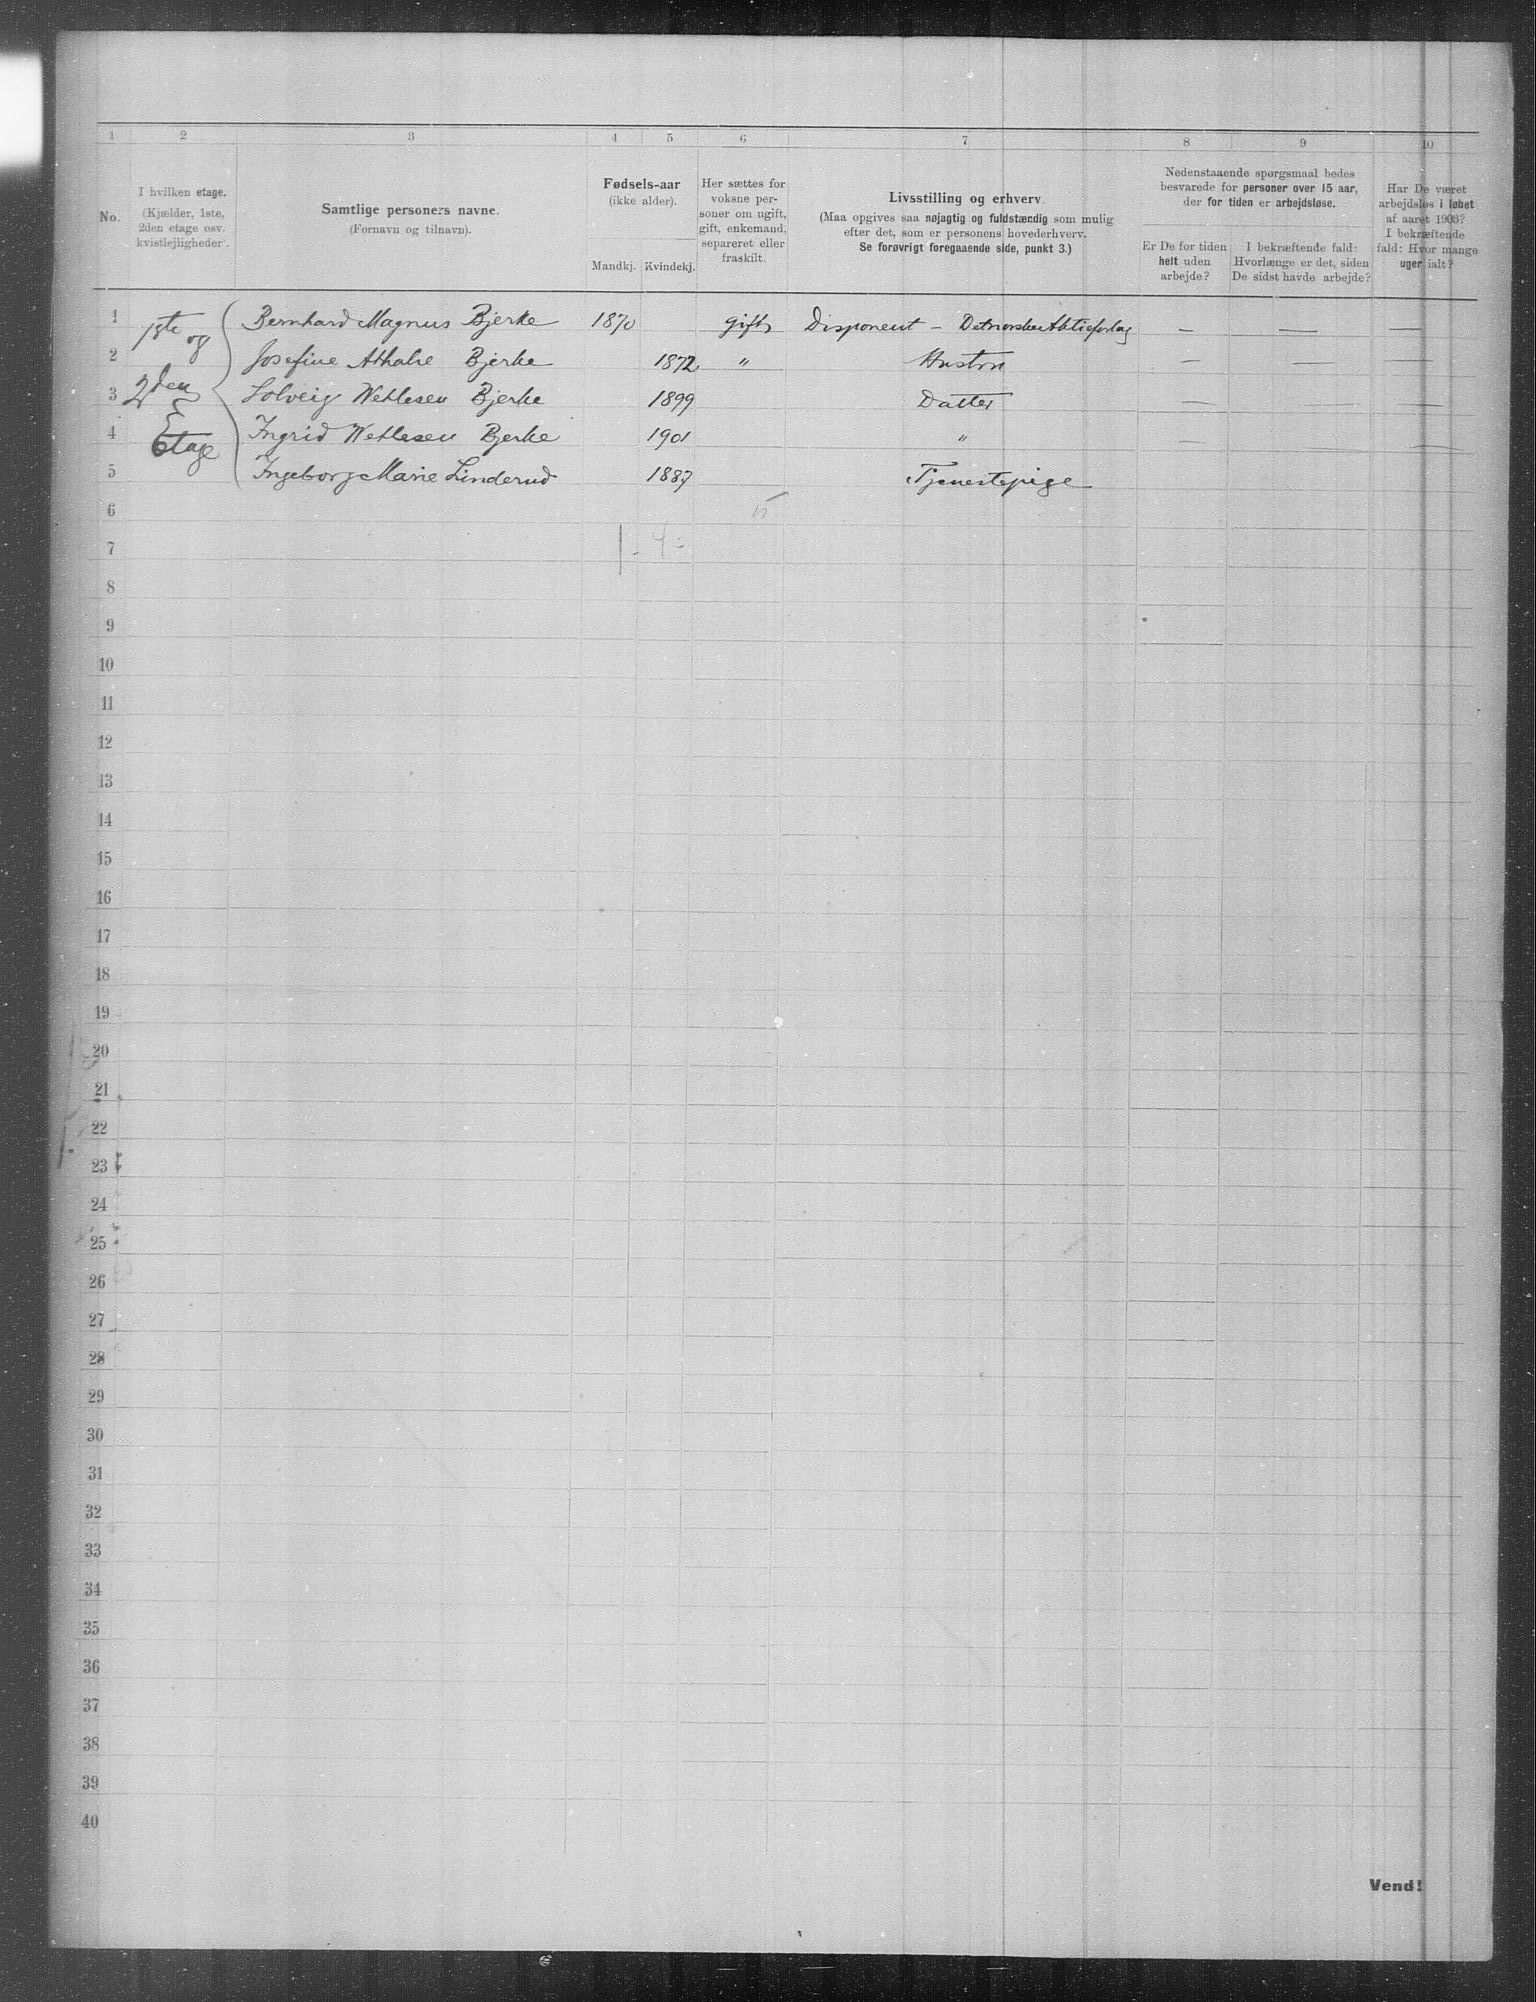 1 2 3 4 5 6 7 8 9 10
No.
I hvilken etage.
(Kjælder, 1ste,
2den etage osv.
kvistleiligheder.
Samtlige personers navne.
(Fornavn og tilnavn).
Fødsels-aar
(ikke alder).
Mandkj. Kvindekj.
Her sættes for
voksne per-
soner om ugift,
gift, enkemand,
separeret eller
fraskilt.
Livsstilling og erhverv.
(Maa opgives saa nøjagtig og fuldstændig som mulig
efter det, som er personens hovederhverv.
Se forøvrigt foregaaende side, punkt 3.)
Nedenstaaende spørgsmaal bedes
besvarede for personer over 15 aar,
der for tiden er arbejdsløse.
Er De for tiden
helt uden
arbejde?
I bekræftende fald:
Hvorlænge er det, siden
De sidst havde arbejde?
Har De været
arbejdsløs i løbet
af aaret 1903?
I bekræftende
fald: Hvor mange
uger ialt?
1ste og
2den
Etage
1 Bernhard Magnus Bjerke 1870 gift Disponent – Det norske Aktieforlag — — —
2 Josefine Athalie Bjerke 1872 " Hustru — — —
3 Solveig Wetlesen Bjerke 1899 Datter — — —
4 Ingrid Wetlesen Bjerke 1901 " — —
5 Ingeborg Marie Linderud 1887 Tjenestepige
6
7 1 - 4 -
8
9
10
11
12
13
14
15
16
17
18
19
20
21
22
23
24
25
26
27
28
29
30
31
32
33
34
35
36
37
38
39
40
Vend!